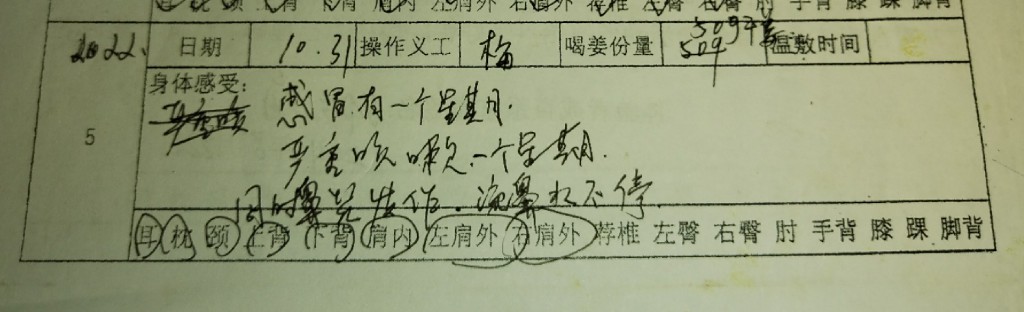 上背 下背 肩内 左肩外 右肩外 荐椎 左臀 右臀 肘 手背 膝 踝 脚背
2022. 日期 10.31 操作义工 梅 喝姜份量 509 温敷时间
身体感受:
感冒有一个星期.
5
严重咳嗽一个星期.
同时鼻 发作. 流鼻水不停.
耳 枕 颈 上背 下背 肩内 左肩外 右肩外 荐椎 左臀 右臀 肘 手背 膝 踝 脚背